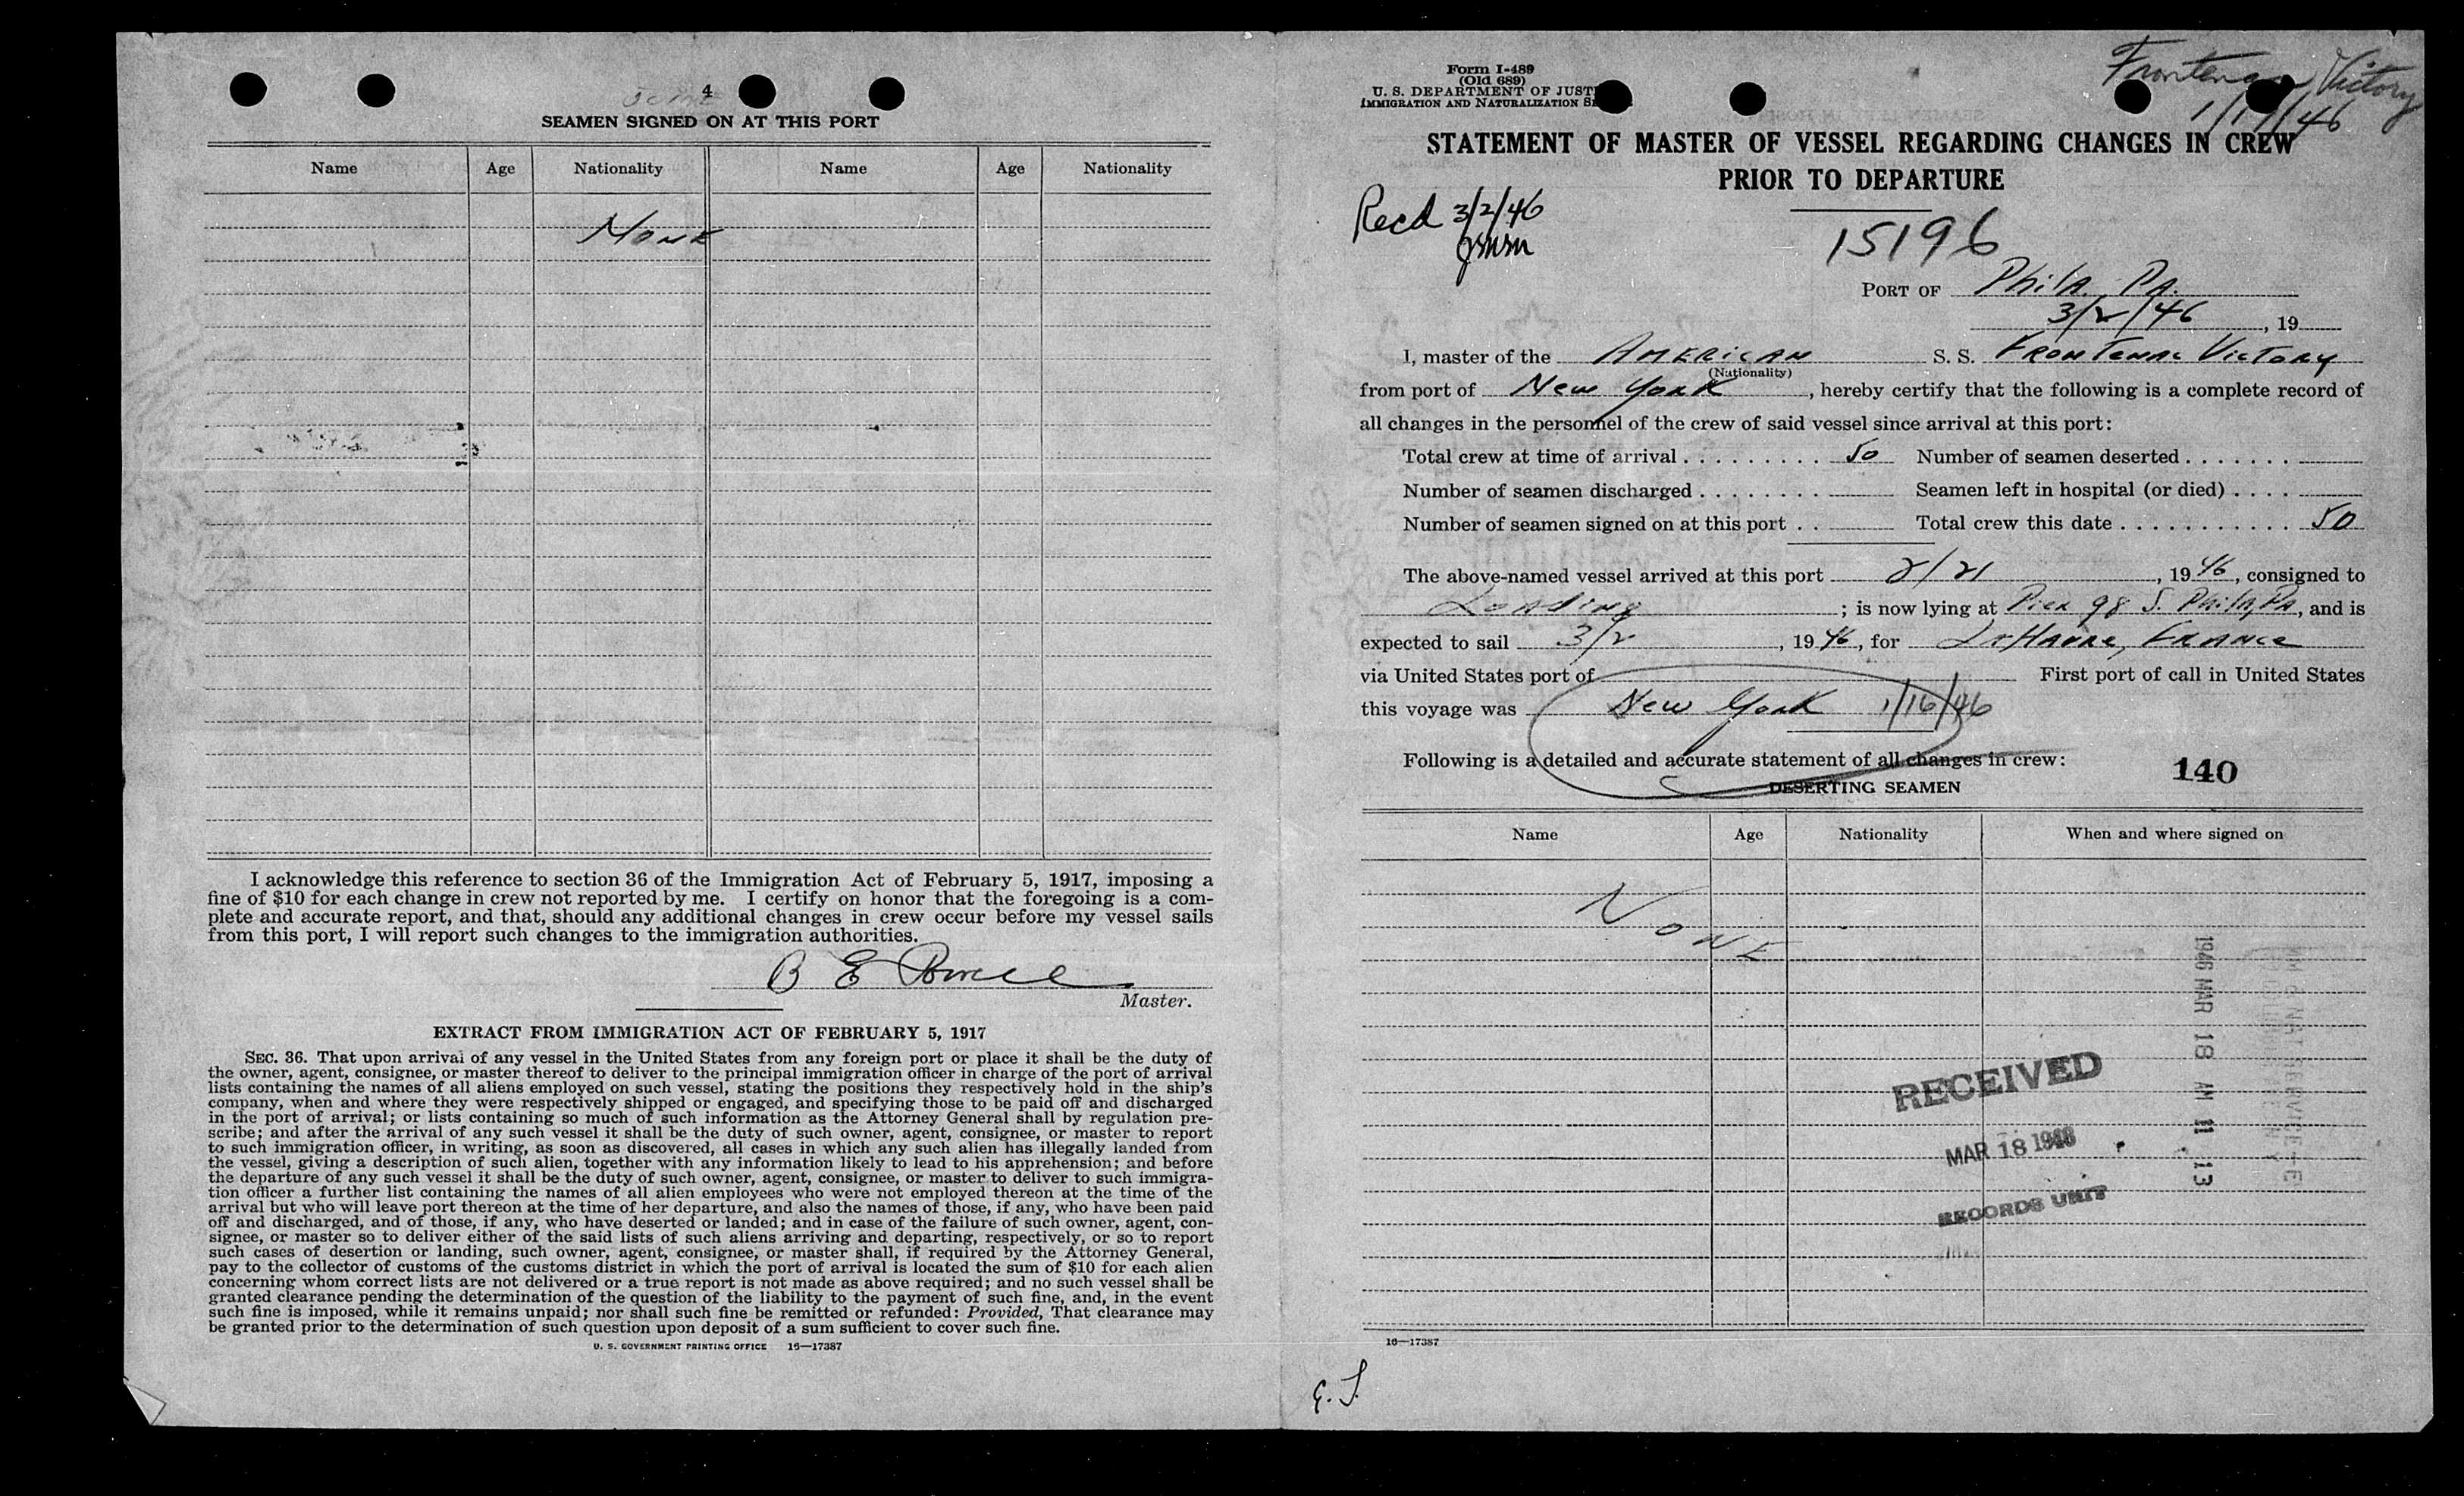 4
SEAMEN SIGNED ON AT THIS PORT
Name Age Nationality Name Age Nationality
None
I acknowledge this reference to section 36 of the Immigration Act of February 5, 1917, imposing a
fine of $10 for each change in crew not reported by me. I certify on honor that the foregoing is a com-
plete and accurate report, and that, should any additional changes in crew occur before my vessel sails
from this port, I will report such changes to the immigration authorities.
B E
Master.
EXTRACT FROM IMMIGRATION ACT OF FEBRUARY 5, 1917
SEC. 36. That upon arrival of any vessel in the United States from any foreign port or place it shall be the duty of
the owner, agent, consignee, or master thereof to deliver to the principal immigration officer in charge of the port of arrival
lists containing the names of all aliens employed on such vessel, stating the positions they respectively hold in the ship's
company, when and where they were respectively shipped or engaged, and specifying those to be paid off and discharged
in the port of arrival; or lists containing so much of such information as the Attorney General shall by regulation pre-
scribe; and after the arrival of any such vessel it shall be the duty of such owner, agent, consignee, or master to report
to such immigration officer, in writing, as soon as discovered, all cases in which any such alien has illegally landed from
the vessel, giving a description of such alien, together with any information likely to lead to his apprehension; and before
the departure of any such vessel it shall be the duty of such owner, agent, consignee, or master to deliver to such immigra-
tion officer a further list containing the names of all alien employees who were not employed thereon at the time of the
arrival but who will leave port thereon at the time of her departure, and also the names of those, if any, who have been paid
off and discharged, and of those, if any, who have deserted or landed; and in case of the failure of such owner, agent, con-
signee, or master so to deliver either of the said lists of such aliens arriving and departing, respectively, or so to report
such cases of desertion or landing, such owner, agent, consignee, or master shall, if required by the Attorney General,
pay to the collector of customs of the customs district in which the port of arrival is located the sum of $10 for each alien
concerning whom correct lists are not delivered or a true report is not made as above required; and no such vessel shall be
granted clearance pending the determination of the question of the liability to the payment of such fine, and, in the event
such fine is imposed, while it remains unpaid; nor shall such fine be remitted or refunded: Provided, That clearance may
be granted prior to the determination of such question upon deposit of a sum sufficient to cover such fine.
U. S. GOVERNMENT PRINTING OFFICE 16—17387
Form I-489
(Old 689)
U. S. DEPARTMENT OF JUST
IMMIGRATION AND NATURALIZATION SE
Frontenac Victory
1/17/46
STATEMENT OF MASTER OF VESSEL REGARDING CHANGES IN CREW
PRIOR TO DEPARTURE
Recd 3/2/46
15196
PORT OF Phila. Pa.
3/2/46, 19
I, master of the American S. S. Frontenac Victory
(Nationality)
from port of New York, hereby certify that the following is a complete record of
all changes in the personnel of the crew of said vessel since arrival at this port:
Total crew at time of arrival . . . . . . . . . . 50 Number of seamen deserted . . . . . . .
Number of seamen discharged . . . . . . . . Seamen left in hospital (or died) . . . .
Number of seamen signed on at this port . . Total crew this date . . . . . . . . . . . 50
The above-named vessel arrived at this port 2/21, 1946, consigned to
Loading; is now lying at Pier 98 S. Phila, Pa, and is
expected to sail 3/2, 1946, for LeHavre, France
via United States port of First port of call in United States
this voyage was New York 1/16/46
Following is a detailed and accurate statement of all changes in crew:
140
DESERTING SEAMEN
Name Age Nationality When and where signed on
NONE
1946 MAR 18 AM 11 13
RECEIVED
MAR 18 1946
RECORDS UNIT
16—17387
E. S.